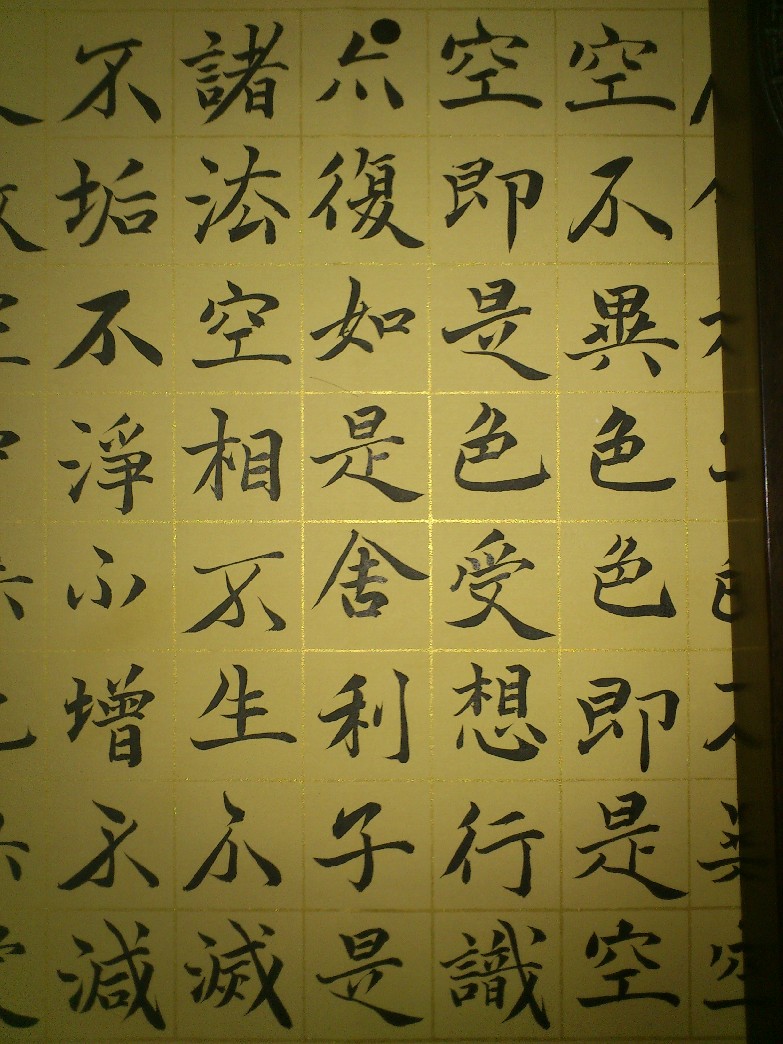 空不異色色即是空
空即是色受想行識
亦復如是舍利子是
諸法空相不生不滅
不垢不淨不增不減